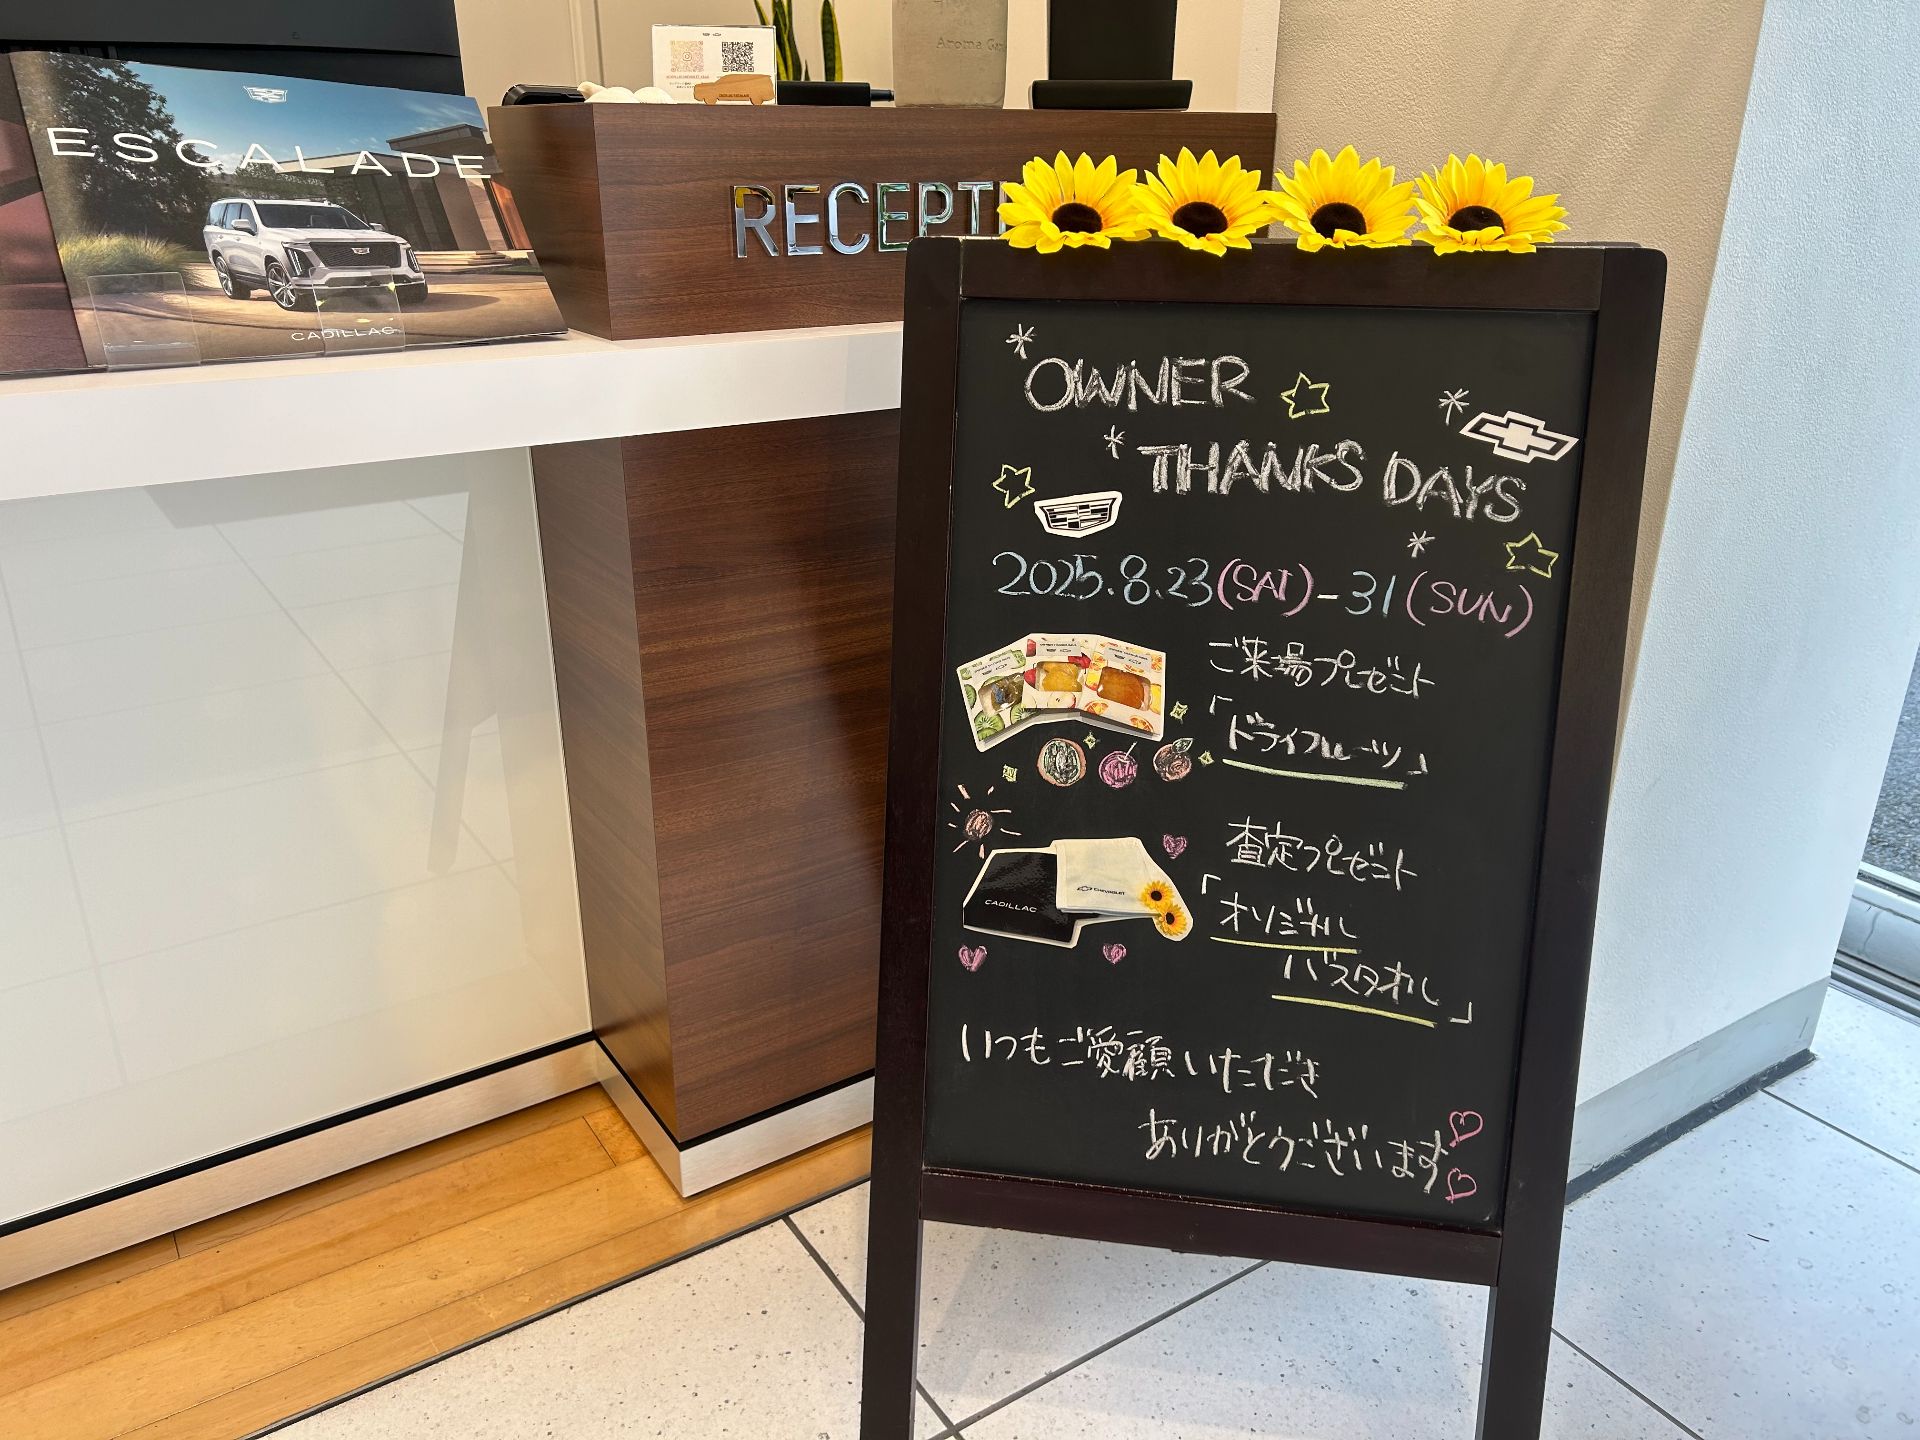 ESCALADE
CADILLAC
Aroma
RECEPTI
OWNER
THANKS DAYS
2025.8.23(SAT)-31(SUN)
ご来場プレゼント
「ドライフルーツ」
査定プレゼント
「オリジナル
バスタオル」
CHEVROLET
CADILLAC
いつもご愛顧いただき
ありがとうございます